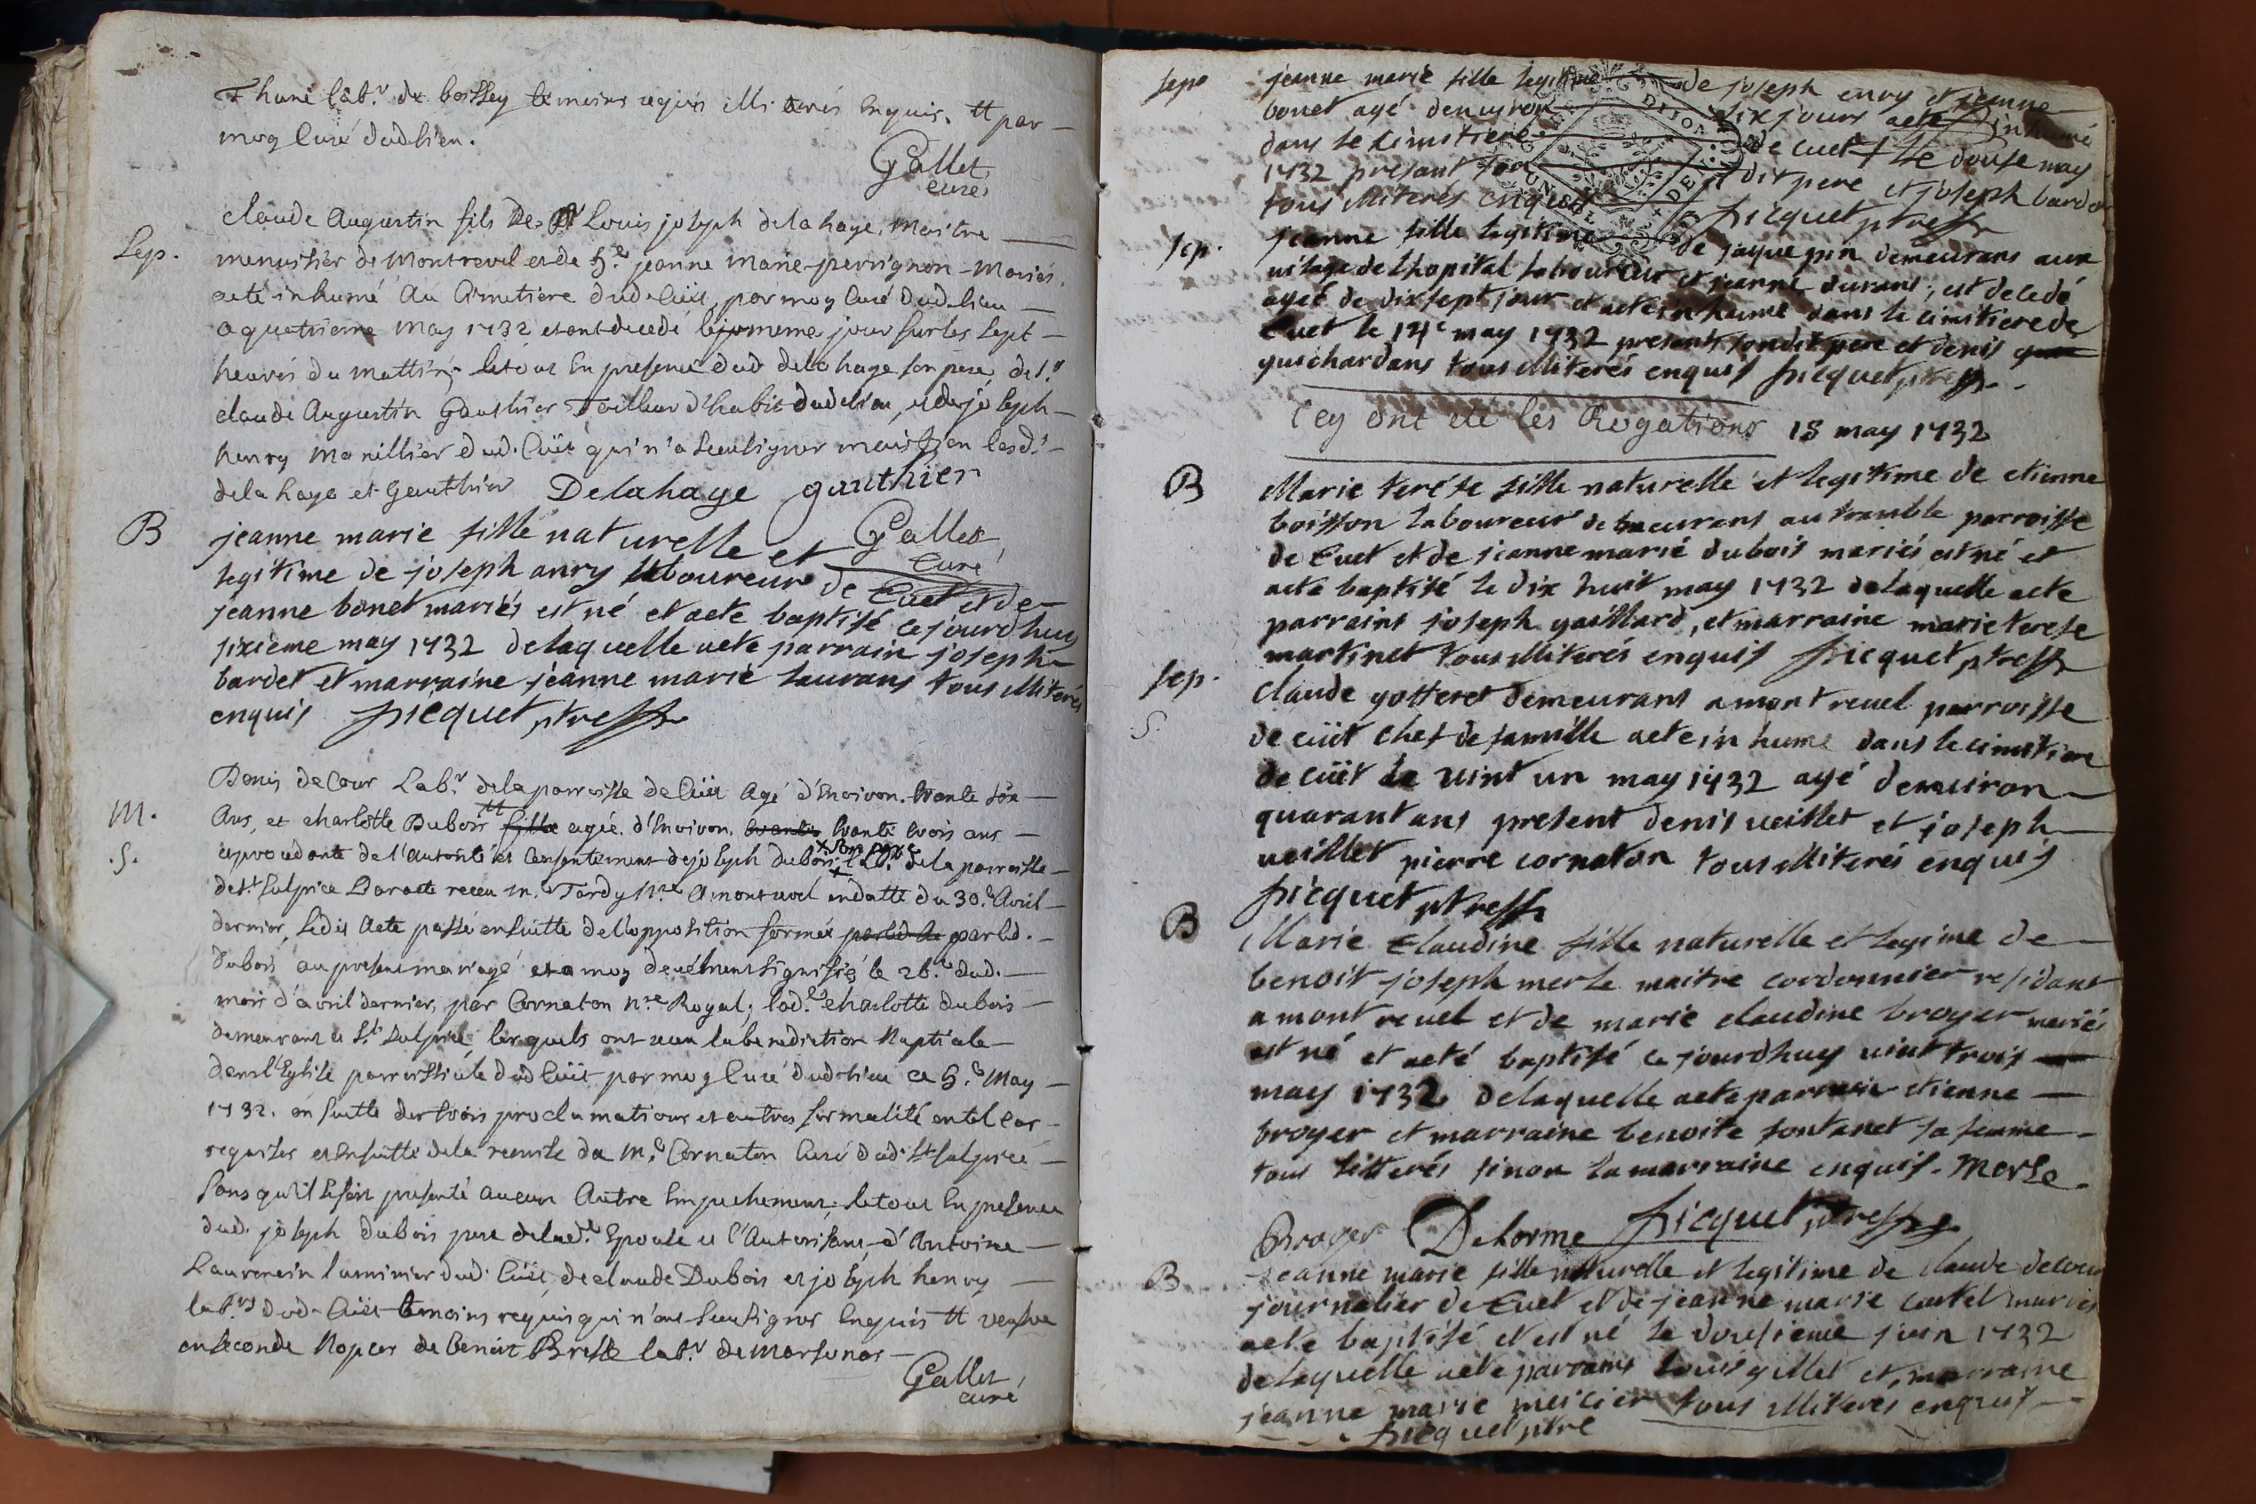 Thuné lab.r de boissey temoins requis illiterés Enquis. Et par
moy Curé dudt lieu.
Gallet
curé
Sep.
claude Augustin fils De Sr Louis joseph delahaye, Maitre
menuisier de Montrevel et de h.e jeanne marie perrignon Mariés
a eté inhumé Au Cimetiere dud. Cüet, par moy Curé Dud. lieu
quatrieme May 1732 etant decedé le meme jour sur les sept
heures du mattin; le tout En presence dud delahaye son pere, de s.r
claude Augustin Gauthier Tailleur d'habit dudt lieu, et de joseph
henry Manillier dud. Cüet qui n'a sceu signer mais bien lesd.
delahaye et Gauthier Delahaye gauthier
Gallet
Curé
B
jeanne marie fille naturelle et
legitime de joseph anry laboureur de Cuet et de
jeanne bonet mariés est né et a eté baptisé cejourdhuy
sixième may 1732 delaquelle a eté parrain joseph
bardet et marraine jeanne marie laurans tous illiterés
enquis picquet ptre
M.
.S.
Denis deCour Lab.r de la parroisse de Cüet Agé d'Environ trente six
Ans, et charlotte Dubois fille agée d'Environ trente trois ans
procedante de l'autorité et Consentement de joseph dubois son pere lab.r de la parroisse
de St Sulpice Par acte receu M.e Tardy N.re A montrevel en datte du 30.e Avril
dernier, Ledit Acte passé ensuitte de l'opposition formée par led.
Dubois au present mariage et a moy deuëment signifié le 26.e dud.
mois d'avril dernier, par Cornaton N.re Royal; lad.e charlotte dubois
demeurant a St Sulpice, lesquels ont receu la benediction Nuptiale
dans l'Eglise parroissiale dud Cüet par moy Curé dud. lieu ce 5.e May
1732. en suitte des trois proclamations et autres formalité en tel cas
requises et Ensuitte de la remise de M.e Cornaton Curé dud. St sulpice
sans qu'il se soit presenté aucun Autre Empechement; le tout En presence
dud. joseph dubois pere de lad.e Epouse et l'Autorisant, d'Antoine
Laurencin luminier dud. Cüet, de claude Dubois et joseph henry
lab.rs dud. Cüet temoins requis qui n'ont sceu signer Enquis Et veufve
en seconde Nopces de Benoit Bresse lab.r de Marsonas
Gallet
curé
sep
jeanne marie fille legitime de joseph enry et jeanne
bonet agé denviron six jours a eté inhumé
dans le cimitiere de cuet le douse may
1732 présant son dit pere et joseph bardet
tous illiterés enquis picquet ptre
sep.
jeanne fille legitime de jaque pin demeurans aux
vilage de Lhopital laboureur et jeanne durant, est decedé
agé de dix sept jour et a eté in humé dans le cimitiere de
Cuet le 14e may 1732 presents son dit pere et denis
guichardans tous illiterés enquis picquet ptre
Cey ont eté les Rogations 18 may 1732
B
Marie terése fille naturelle et legitime de etienne
boisson laboureur demeurans au tremble parroisse
de Cuet et de jeanne marie dubois mariés est né et
a eté baptisé le dix huit may 1732 delaquelle a eté
parrains joseph gaillard, et marraine marie terese
martinet tous illiterés enquis picquet ptre
sep.
S.
Claude gotteret demeurans a mont revel parroisse
de cüet chef de famille a eté in humé dans le cimitiere
de cüet le vint un may 1732 agé denviron
quarant ans present denis veillet et joseph
veillet pierre cornaton tous illiterés enquis
picquet ptre
B
Marie Claudine fille naturelle et legitime de
benoit joseph merle maitre cordonnier residant
a mont revel et de marie claudine broyer mariés
est né et a eté baptisé ce jourdhuy vint trois
may 1732 delaquelle a eté parrain etienne
broyer et marraine benoite fontanet sa femme
tous litterés sinon la marraine enquis. Merle
Broyer Delorme picquet ptre
B
jeanne marie fille naturelle et legitime de claude decour
journalier de Cuet et de jeanne marie cartel mariés
a eté baptisé et est né le dousieme juin 1732
delaquelle a eté parrains louis gillet et marraine
jeanne marie meicier tous illiterés enquis
picquet ptre